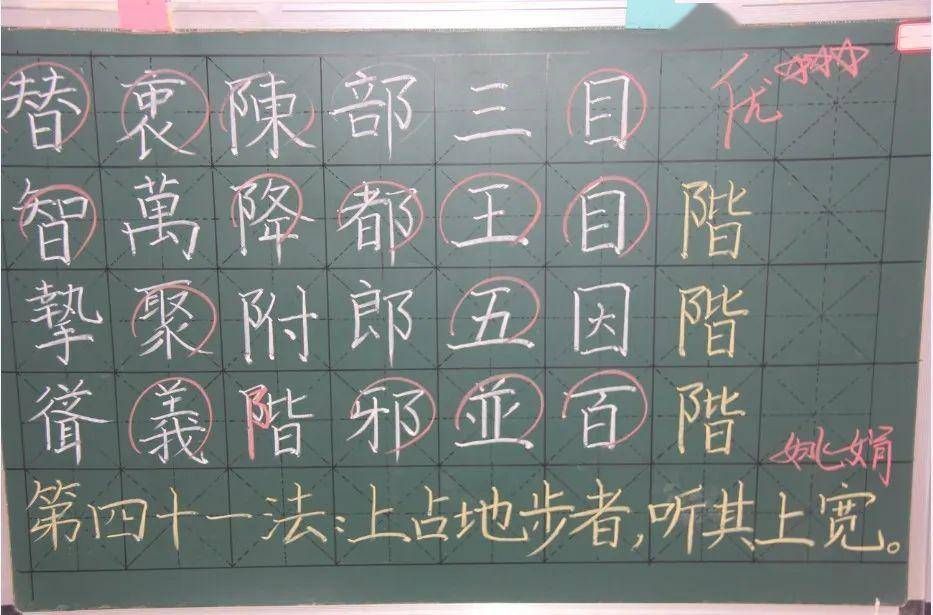 替衷陳部三目优
智萬降都王自階
摯聚附郎五因階
聳義階邪並百階
姚娟
第四十一法:上占地步者,听其上宽。